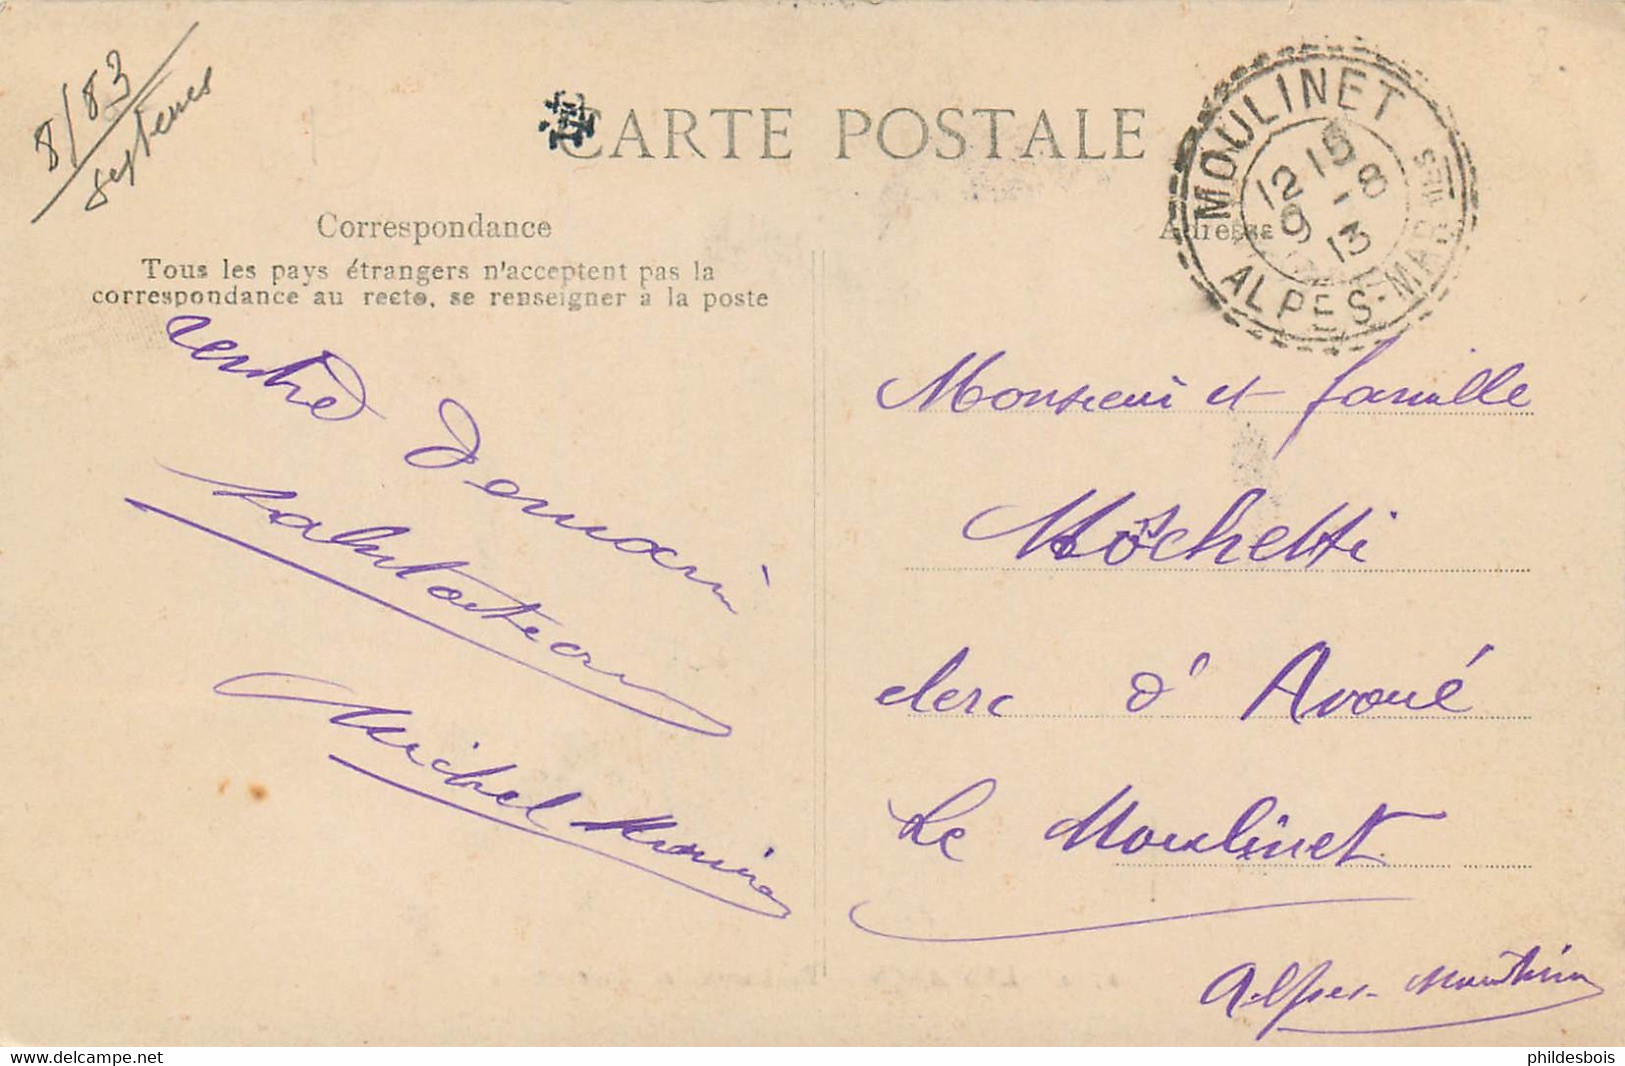 8/83
CARTE POSTALE
MOULINET
12 15
9 - 8
13
ALPES-MAR MES
Correspondance
Adresse
Tous les pays étrangers n'acceptent pas la
correspondance au recto, se renseigner à la poste
rentré
Demain
salutation
Michel
Monsieur et famille
Moschetti
clerc d'Avoué
Le Moulinet
Alpes-Maritimes
delcampe.net
phildesbois